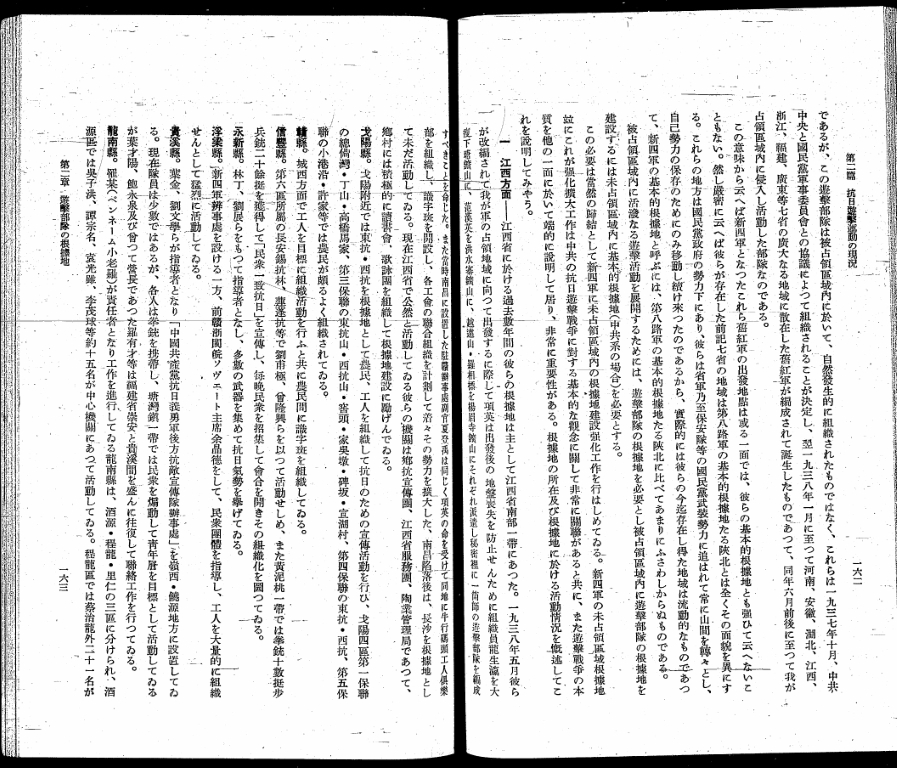 第二篇 抗日遊擊運動の現況
一六二
であるが、この遊擊部隊は被占領區域內に於いて、自然發生的に組織されたものではなく、これらは一九三七年十月、中共
中央と國民黨軍事委員會との協議によつて組織されることが決定し、翌一九三八年一月に至つて河南、安徽、湖北、江西、
浙江、福建、廣東等七省の廣大なる地域に散在した舊紅軍が編成されて誕生したものであつて、同年六月前後に至つて我が
占領區域內に侵入し活動した部隊なのである。
この意味から云へば新四軍となつたこれら舊紅軍の出發地點は或る一面では、彼らの基本的根據地とも强ひて云へないこ
ともない。然し嚴密に云へば彼らが存在した前記七省の地域は第八路軍の基本的根據地たる陝北とは全くその面貌を異にす
る。これらの地方は國民黨政府の勢力下にあり、彼らは省軍乃至保安隊等の國民黨武裝勢力に追はれて常に山間を轉々とし、
自己勢力の保存のためにのみ移動し續け來つたのであるから、實際的には彼らの今迄存在し得た地域は流動的なものであつ
て、新四軍の基本的根據地と呼ぶには、第八路軍の基本的根據地たる陝北に比べてあまりにふさわしからぬものである。
被占領區域內に活潑なる遊擊活動を展開するためには、遊擊部隊の根據地を必要とし被占領區域內に遊擊部隊の根據地を
建設するには未占領區域內に基本的根據地(中共系の場合)を必要とする。
この必要は當然の歸結として新四軍に未占領區域內の根據地建設强化工作を行はしめてゐる。新四軍の未占領區域根據地
並にこれが强化擴大工作は中共の抗日遊擊戰爭に對する基本的な觀念に關して非常に關聯があると共に、また遊擊戰爭の本
質を他の一面に於いて端的に說明して居り、非常に重要性がある。根據地の所在及び根據地に於ける活動情況を槪述してこ
れを說明してみやう。
一 江西方面――江西省に於ける過去數年間の彼らの根據地は主として江西省南部一帶にあつた。一九三八年五月彼ら
が改編されて我が軍の占領地域に向つて出發するに際して項英は出發後の地盤喪失を防止せんために組織員龍生瀛を大
すべきことを命じた。また當時南昌に設置した駐贛辦事處
部を組織し、識字班を開設し、各工會の聯合組織を計劃して着々その勢力を擴大した。南昌陷落後は、長沙を根據地とし
て未だ活動してゐる。現在江西省で公然と活動してゐる彼らの機關は鄕抗宣傳團、江西省服務團、陶業管理局であつて、
鄕村には積極的に讀書會、歌詠團を組織して根據地建設に勵げんでゐる。
戈陽縣。戈陽附近では東抗・西抗を根據地として農民、工人を組織して抗日のための宣傳活動を行ひ、戈陽四區第一保聯
の總佈灣・丁山・高橋馬家、第三保聯の東抗山・西抗山・窖頭・家吳墩・碑坂・宣湖村、第四保聯の東抗・西抗、第五保
聯の小港沿・許家等では農民が頗るよく組織されてゐる。
贛縣。城西方面で工人を目標に組織活動を行ふと共に農民間に識字班を組織してゐる。
信豐縣。第六區所屬の長安錫抗林、葬蓬抗等で劉甫極、曾隆興らを以つて活動せしめ、また黃泥杭一帶では拳銃十數挺步
兵銃二十餘挺を獲得して「民衆一致抗日」を宣傳し、每晚民衆を招集して會合を開きその組織化を圖つてゐる。
永新縣。林丁、劉展らをもつて指導者となし、多數の武器を集めて抗日氣勢を擧げてゐる。
浮梁縣。新四軍辦事處を設ける一方、前贛浙閩皖ソヴエート主席余品德をして、民衆團體を指導し、工人を大量的に組織
せんとして猛烈に活動してゐる。
貴溪縣。葉金、劉文學らが指導者となり「中國共產黨抗日義勇軍後方抗敵宣傳隊辦事處」を嶺西・饒源地方に設置してゐ
る。現在隊員は少數ではあるが、各人は拳銃を携帶し、塘灣鎭一帶では民衆を煽動して靑年層を目標として活動してゐる
が葉才陽、鮑永泉及び曾つて營長であつた羅有才等は福建省崇安と貴溪間を盛んに往復して聯絡工作を行つてゐる。
龍南縣。羅某(ペンネーム小老羅)が責任者となり工作を進行してゐる龍南縣は、酒源・程龍・里仁の三區に分けられ、酒
源區では吳子渓、譚宗名、袁光雖、李茂球等約十五名が中心機關にあつて活動してゐる。程龍區では蔡治龍外二十一名が
第二章 遊擊部隊の根據地
一六三